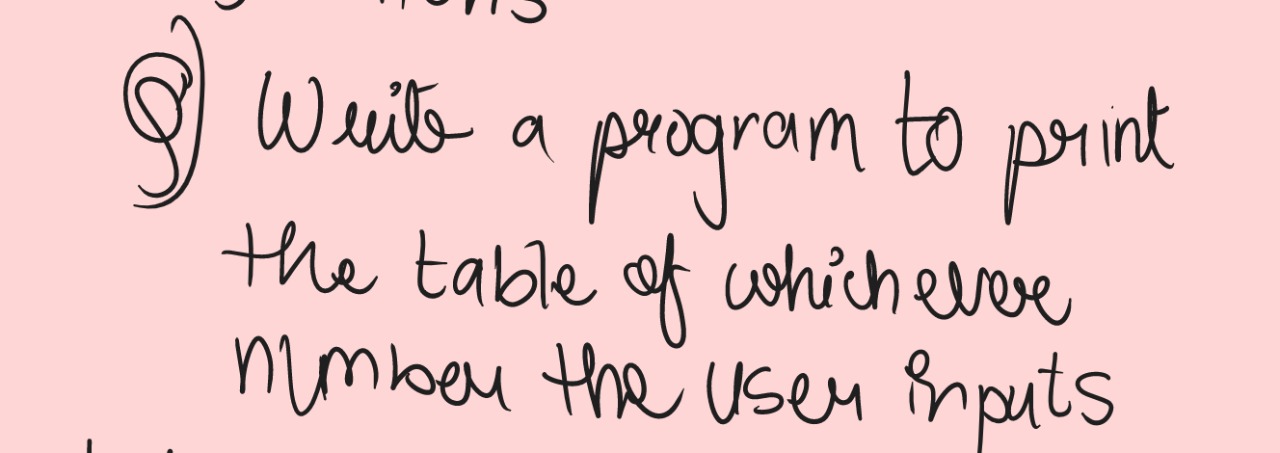 Q) Write a program to print
the table of whichever
number the user inputs